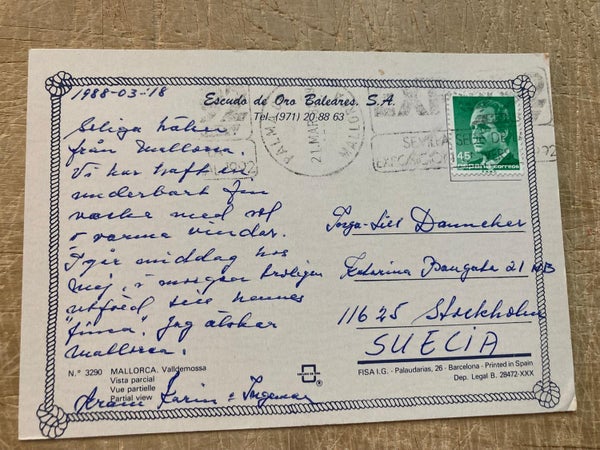 1988-03-18
Escudo de Oro Baleares. S.A.
Tel. (971) 20 88 63
Soliga hälsn
från Mallorca.
Vi har haft en
underbart fin
vecka med sol
o varma vindar.
Igår middag hos
Maj, i morgon
utfärd till hennes
"finca". Jag älskar
Mallorca.
Kram Karin + Ingemar
PALM
21 MAR
MALLORCA
EXPO
92
SEVILLA SEDE DE
EXPOSICION
1992
45
España correos
Inga-Lill Danneker
Katarina Bangata 21 NB
116 25 Stockholm
SUECIA
N.º 3290 MALLORCA. Valldemossa
Vista parcial
Vue partielle
Partial view
FISA I.G. - Palaudarias, 26 - Barcelona - Printed in Spain
Dep. Legal B. 28472-XXX